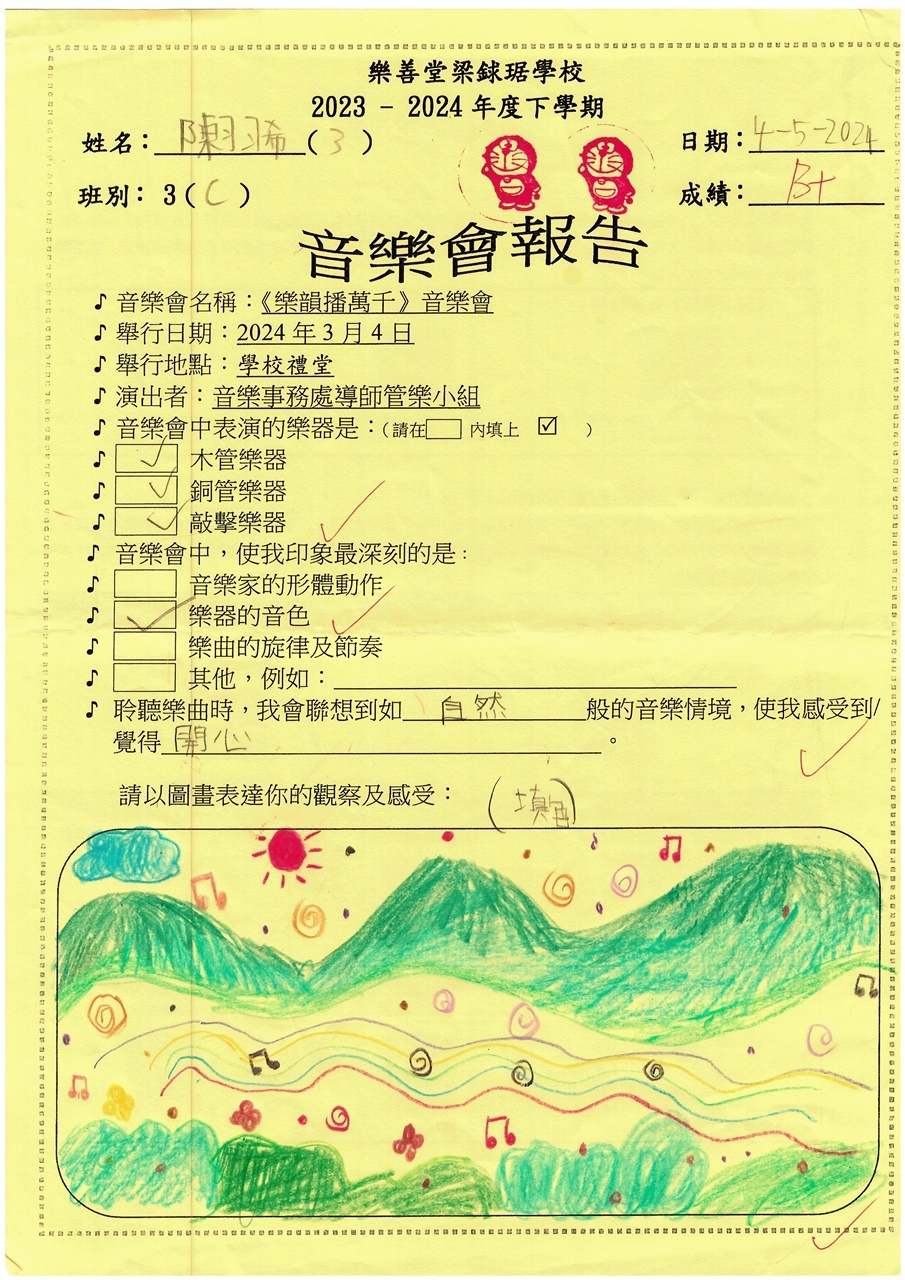 樂善堂梁銶琚學校
2023 - 2024 年度下學期
姓名：陳羽希（3） 日期：4-5-2024
班別：3（C） 成績：B+
音樂會報告
♪ 音樂會名稱：《樂韻播萬千》音樂會
♪ 舉行日期：2024 年 3 月 4 日
♪ 舉行地點：學校禮堂
♪ 演出者：音樂事務處導師管樂小組
♪ 音樂會中表演的樂器是：（請在□ 內填上 ☑ ）
♪ ☑ 木管樂器
♪ ☑ 銅管樂器
♪ ☑ 敲擊樂器
♪ 音樂會中，使我印象最深刻的是：
♪ □ 音樂家的形體動作
♪ ☑ 樂器的音色
♪ □ 樂曲的旋律及節奏
♪ □ 其他，例如：
♪ 聆聽樂曲時，我會聯想到如自然般的音樂情境，使我感受到/
覺得開心。
請以圖畫表達你的觀察及感受：（填色）